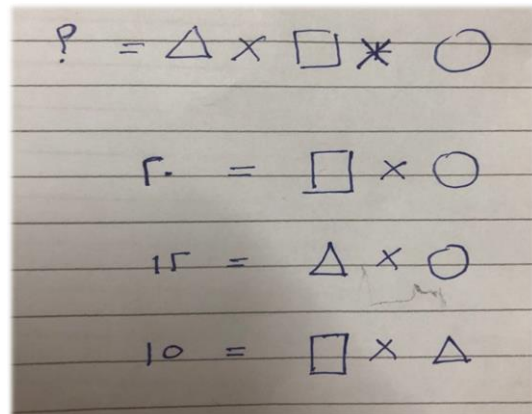 ○ × □ × △ = ؟
○ × □ = ٢٠
○ × △ = ١٢
△ × □ = ١٥